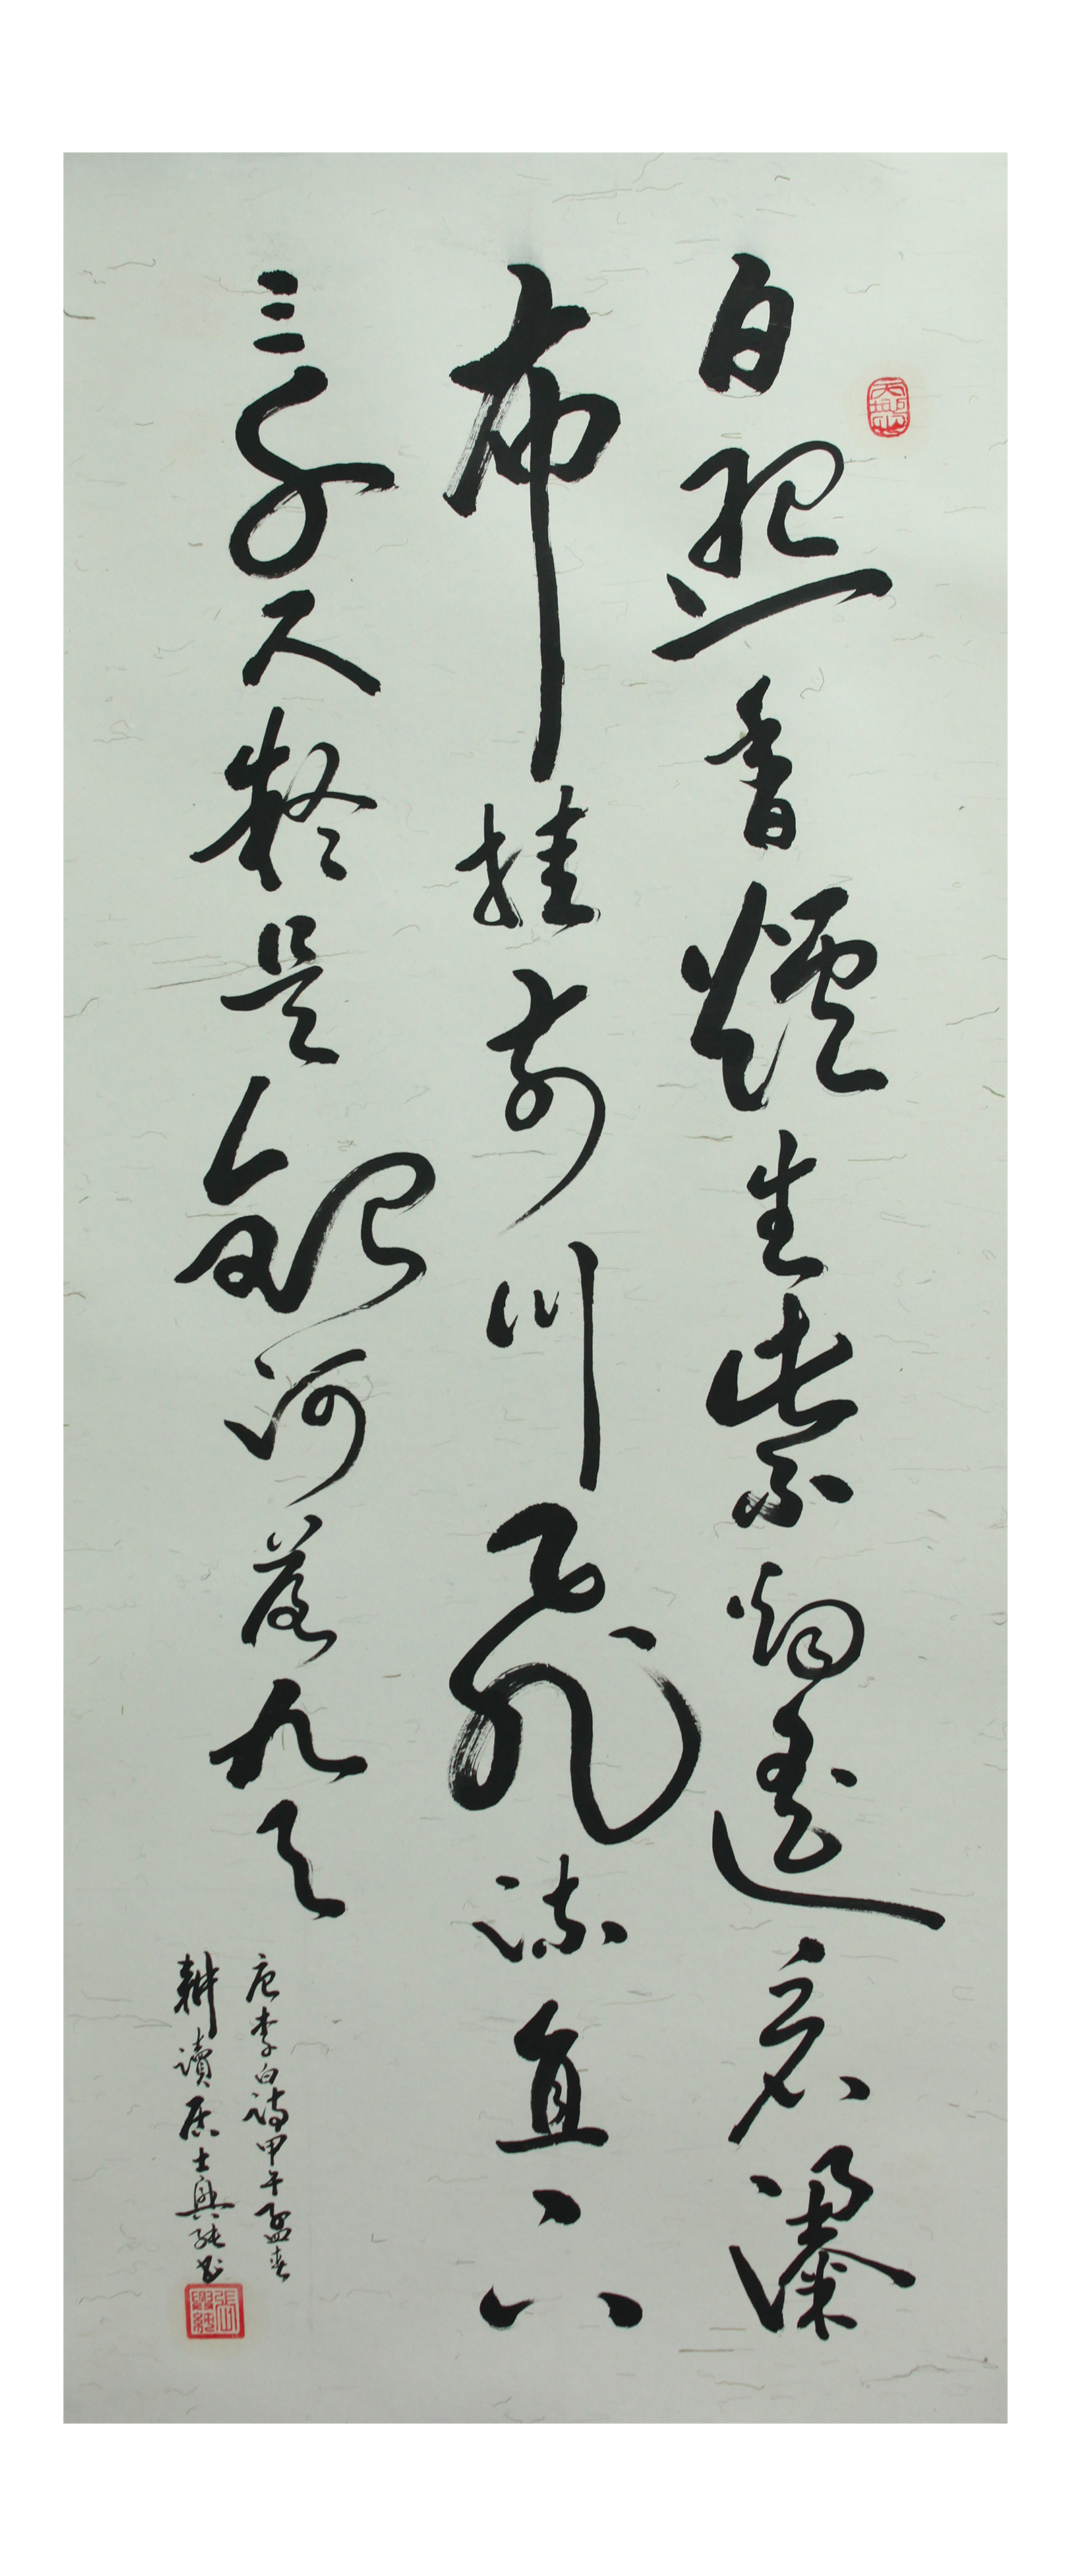 日照香爐生紫烟遙看瀑
布挂前川飛流直下
三千尺疑是銀河落九天
唐李白詩甲午孟春
耕讀居士興書